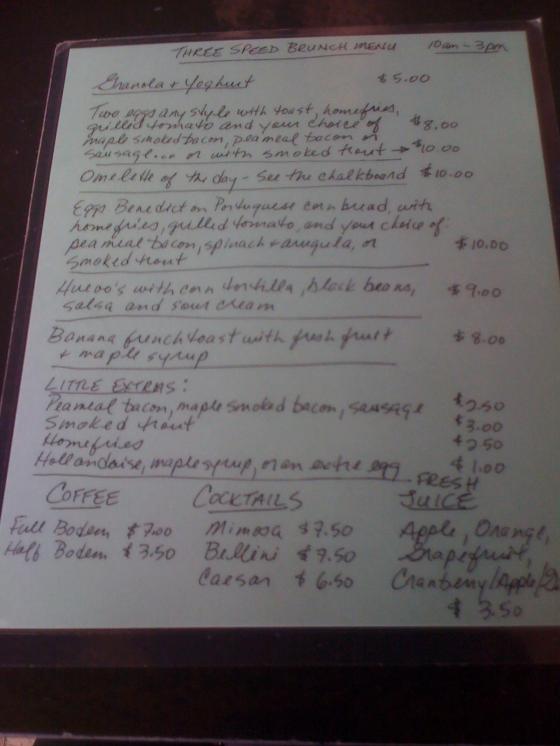 THREE SPEED BRUNCH MENU 10am - 3pm
Granola + Yoghurt $5.00
Two eggs any style with toast, homefries,
grilled tomato and your choice of $8.00
maple smoked bacon, peameal bacon or
sausage... or with smoked trout → $10.00
Omelette of the day - See the chalkboard $10.00
Eggs Benedict on Portuguese corn bread, with
homefries, grilled tomato, and your choice of:
peameal bacon, spinach + arugula, or $10.00
smoked trout
Huevo's with corn tortilla, black beans, $9.00
salsa and sour cream
Banana french toast with fresh fruit $8.00
+ maple syrup
LITTLE EXTRAS:
Peameal bacon, maple smoked bacon, sausage $2.50
Smoked trout $3.00
Homefries $2.50
Hollandaise, maple syrup, or an extra egg $1.00
COFFEE COCKTAILS FRESH JUICE
Full Bodem $7.00 Mimosa $7.50 Apple, Orange,
Half Bodem $3.50 Bellini $7.50 Grapefruit,
Caesar $6.50 Cranberry/Apple/
$3.50